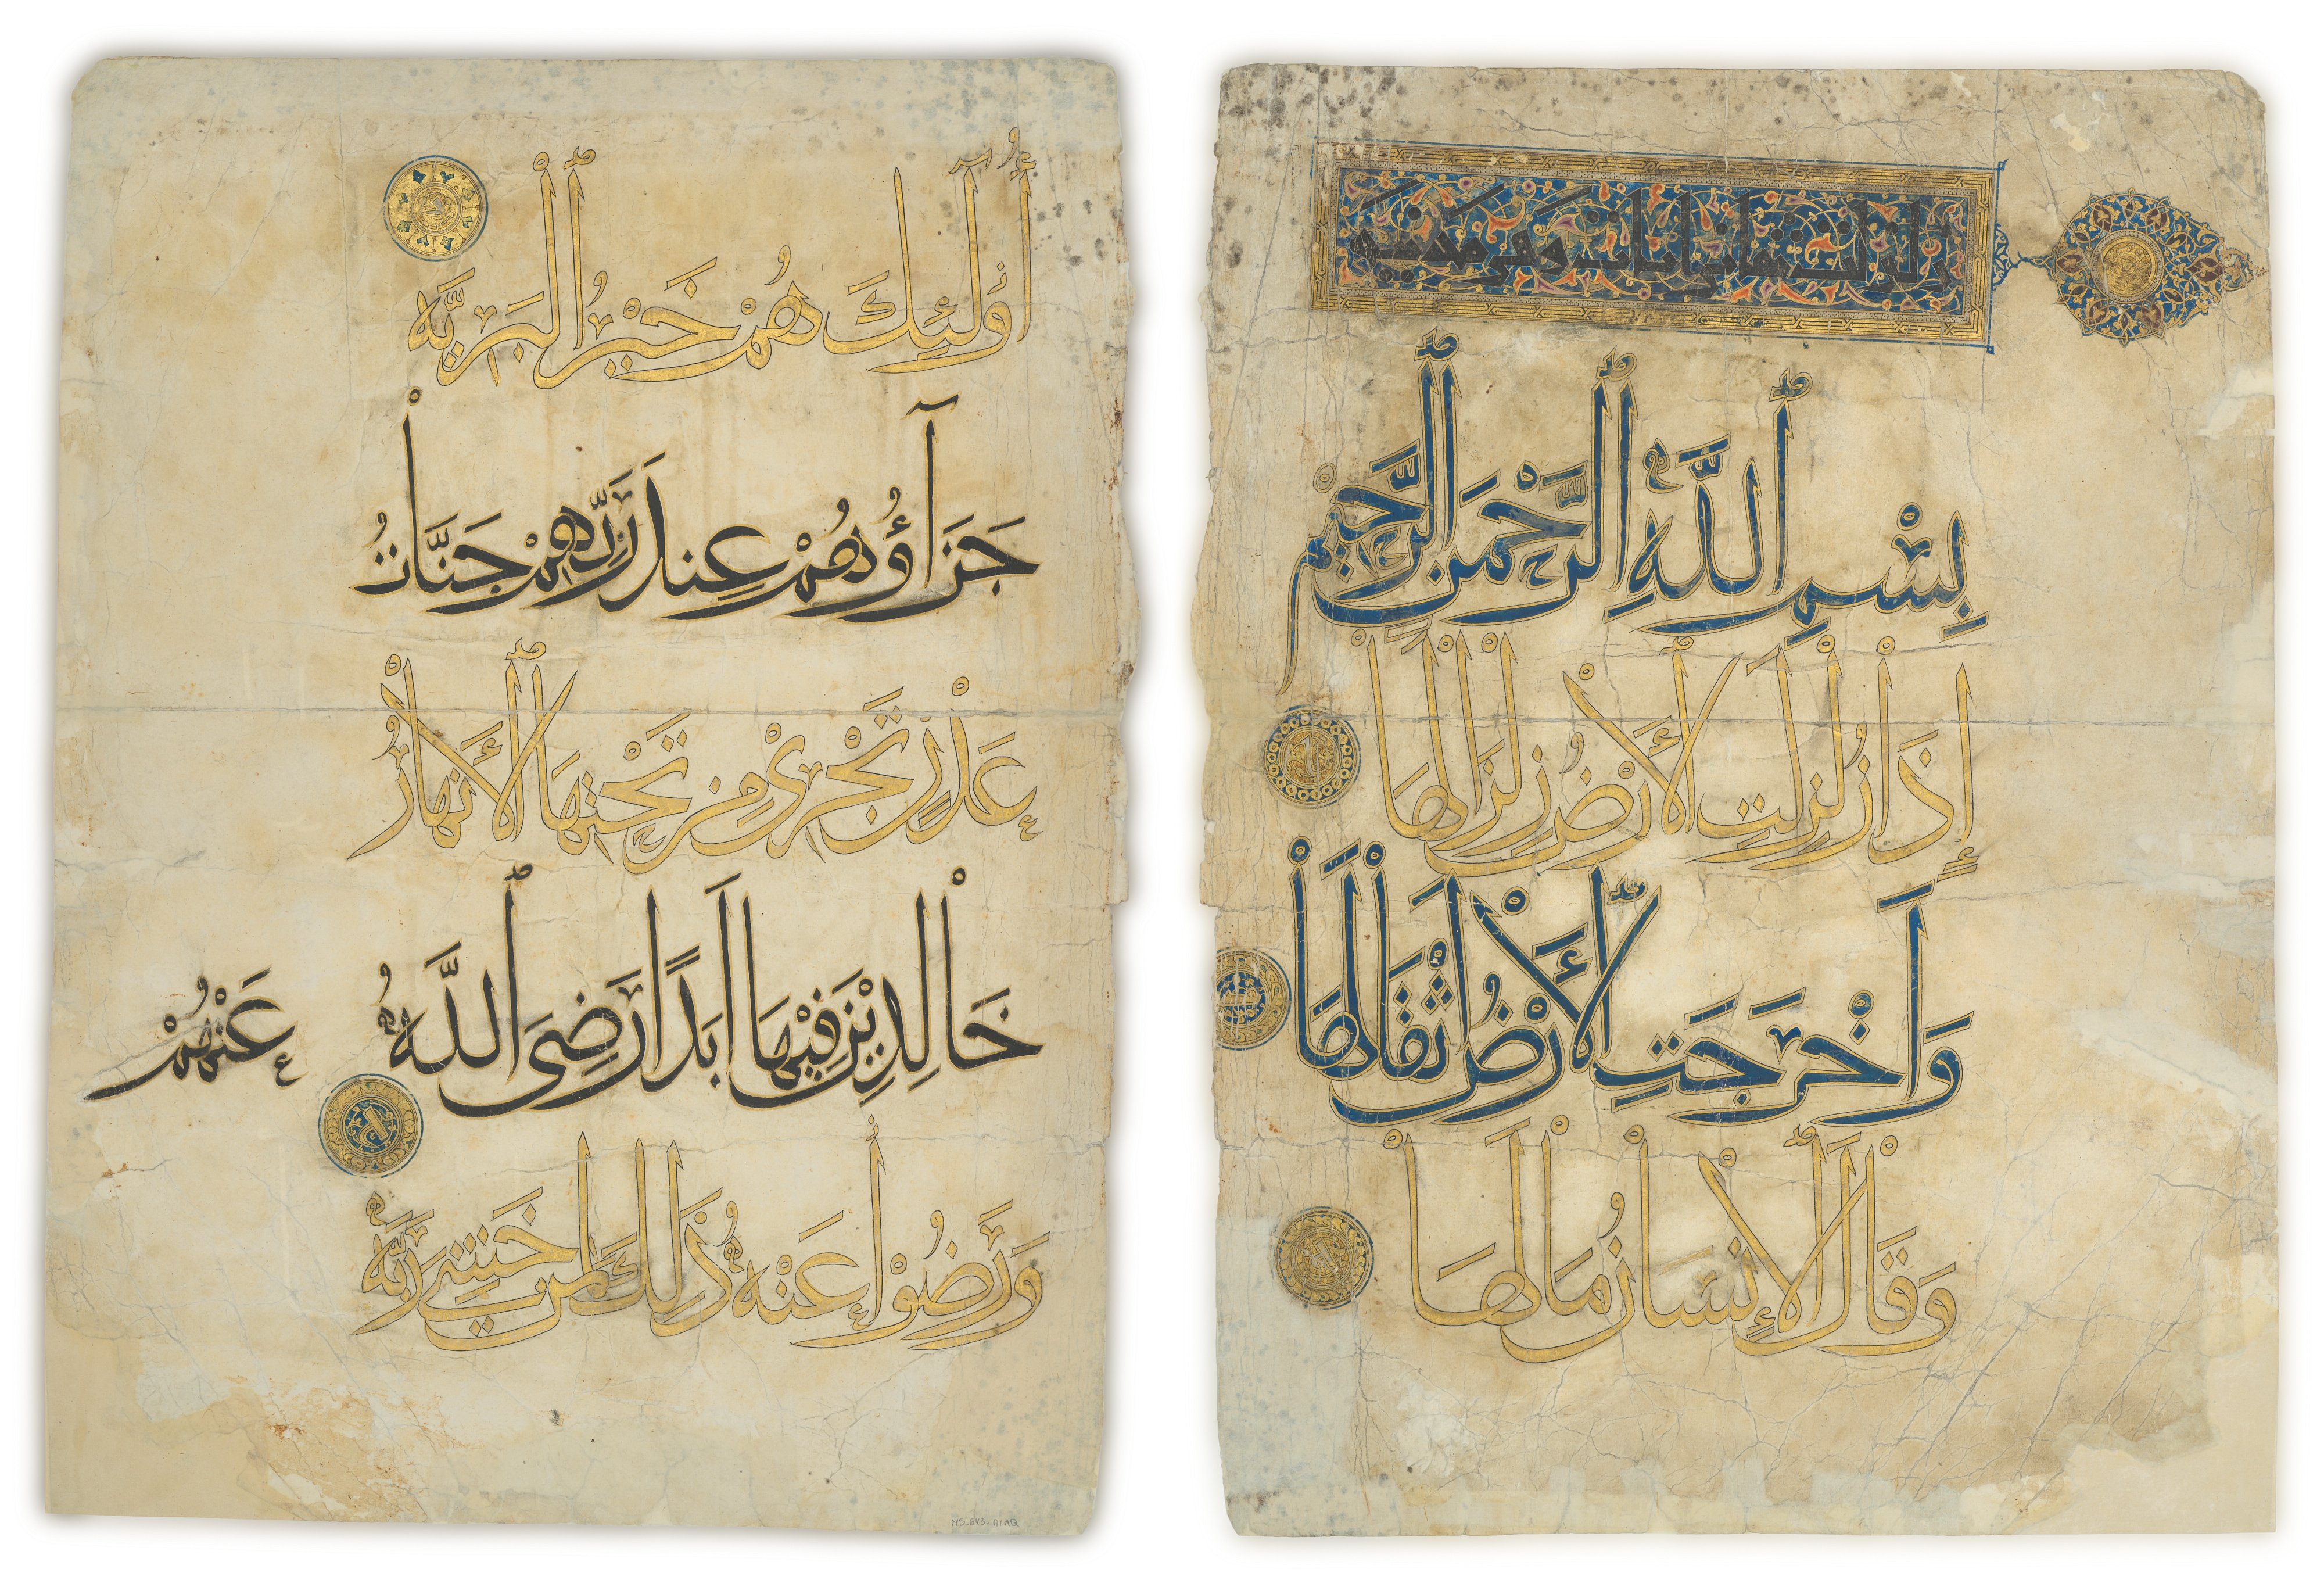 أُوْلَٰئِكَ هُمْ خَيْرُ الْبَرِيَّةِ
جَزَآؤُهُمْ عِندَ رَبِّهِمْ جَنَّاتُ
عَدْنٍ تَجْرِى مِن تَحْتِهَا الْأَنْهَارُ
خَالِدِيْنَ فِيْهَا أَبَدًا رَضِىَ اللَّهُ عَنْهُمْ
وَرَضُوْا عَنْهُ ذَلِكَ لِمَنْ خَشِىَ رَبَّهُ
زلزلت ثمانى ايات وهى مدنية
بِسْمِ اللَّهِ الرَّحْمَنِ الرَّحِيْمِ
إِذَا زُلْزِلَتِ الْأَرْضُ زِلْزَالَهَا
وَأَخْرَجَتِ الْأَرْضُ أَثْقَالَهَا
وَقَالَ الْإِنْسَانُ مَا لَهَا